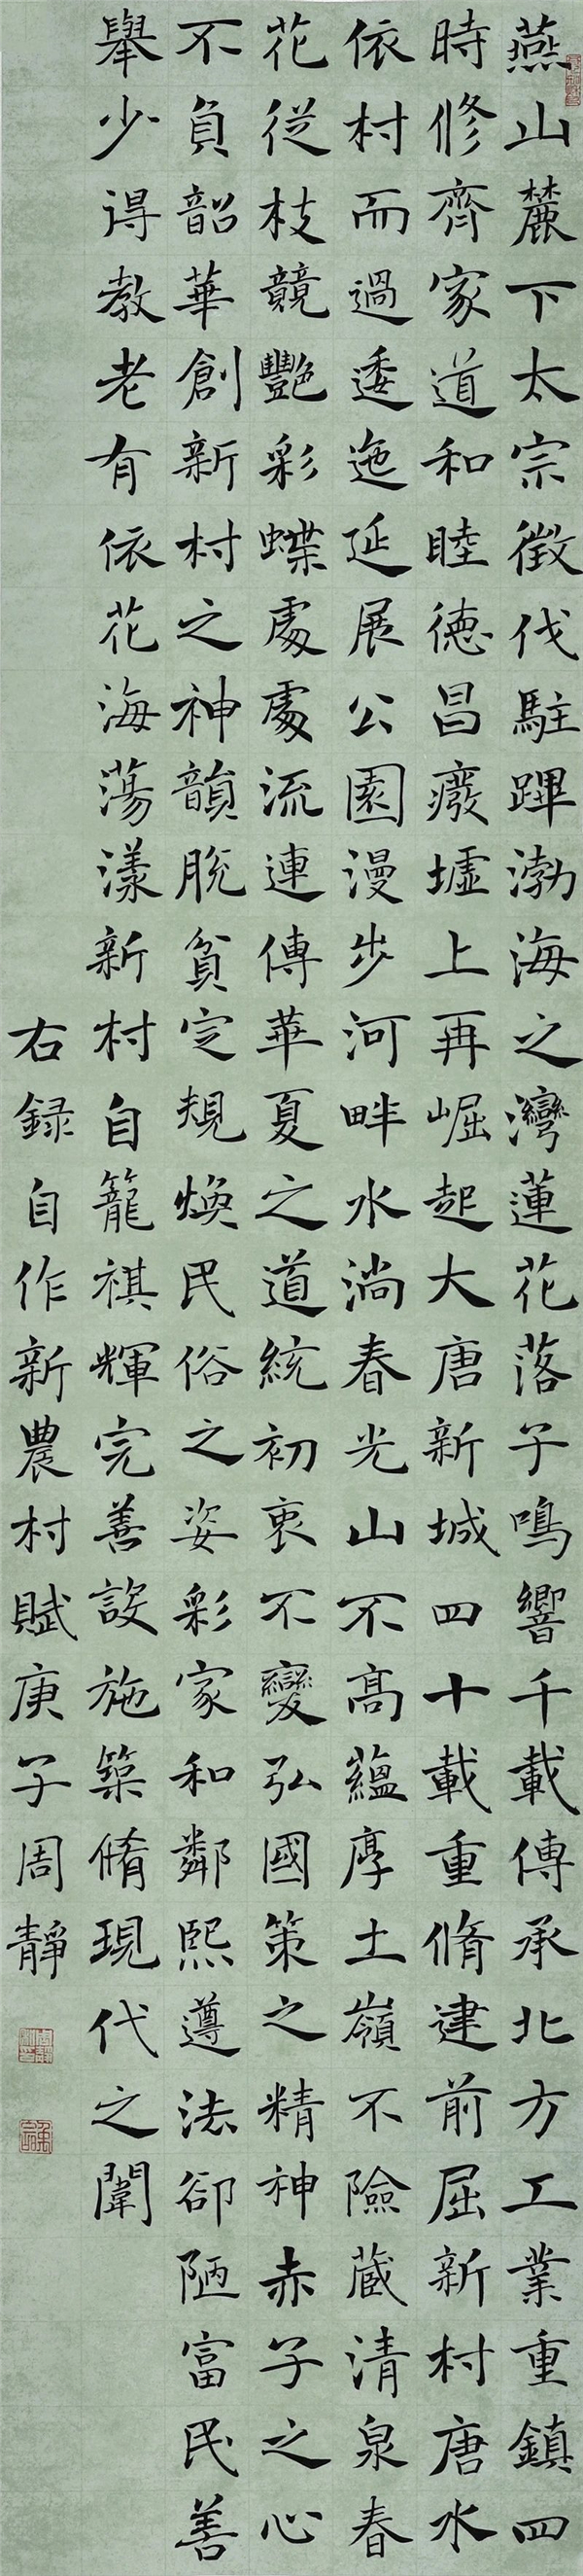 燕山麓下太宗徵伐駐蹕渤海之灣蓮花落子鳴響千載傳承北方工業重鎮四
時修齊家道和睦德昌廢墟上再崛起大唐新城四十載重脩建前屈新村唐水
依村而過逶迤延展公園漫步河畔水淌春光山不高蘊厚土嶺不險蔵清泉春
花從枝競豔彩蝶處處流連傳華夏之道統初衷不變弘國策之精神赤子之心
不負韶華創新村之神韻脫貧定規煥民俗之姿彩家和鄰熙遵法卻陋富民善
舉少得教老有依花海蕩漾新村自籠祺輝完善設施築脩現代之闈
右録自作新農村賦庚子周靜